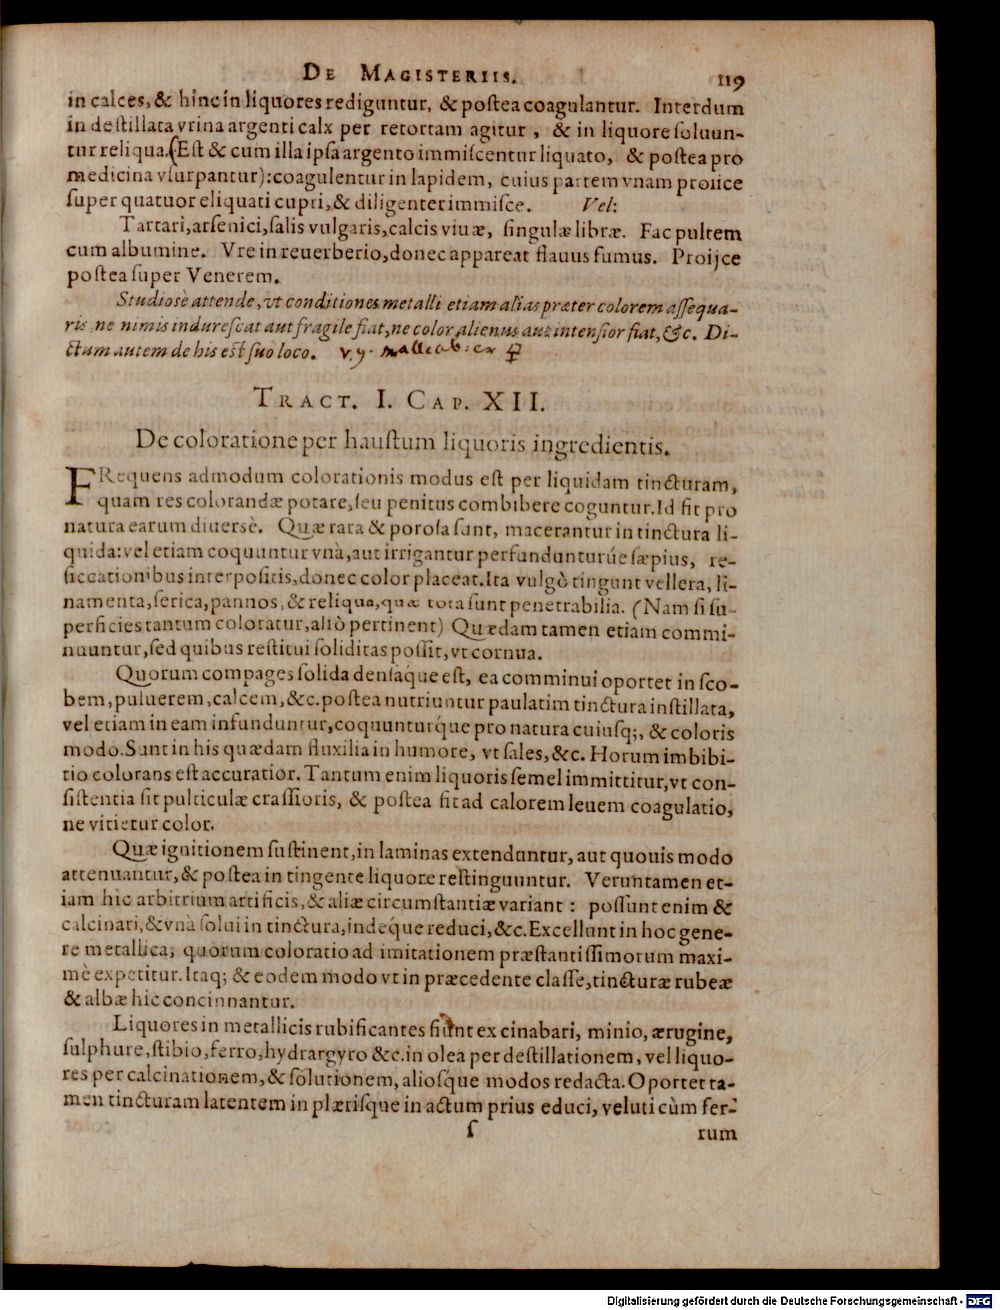 DE MAGISTERIIS. 119
in calces, & hinc in liquores rediguntur, & postea coagulantur. Interdum
in destillata vrina argenti calx per retortam agitur, & in liquore soluun-
tur reliqua. (Est & cum illa ipsa argento immiscentur liquato, & postea pro
medicina vsurpantur): coagulentur in lapidem, cuius partem vnam proiice
super quatuor eliquati cupri, & diligenter immisce. Vel:
Tartari, arsenici, salis vulgaris, calcis viuæ, singulæ libræ. Fac pultem
cum albumine. Vre in reuerberio, donec appareat flauus fumus. Proijce
postea super Venerem.
Studiosè attende, vt conditiones metalli etiam alias præter colorem assequa-
ris, ne nimis indurescat aut fragile fiat, ne color alienus aut intensior fiat, &c. Di-
ctum autem de his est suo loco. v.g.
TRACT. I. CAP. XII.
De coloratione per haustum liquoris ingredientis.
FRequens admodum colorationis modus est per liquidam tincturam,
quam res colorandæ potare, seu penitus combibere coguntur. Id fit pro
natura earum diuersè. Quæ rara & porosa sunt, macerantur in tinctura li-
quida: vel etiam coquuntur vnà, aut irrigantur perfundunturúe sæpius, re-
siccationibus interpositis, donec color placeat. Ita vulgò tingunt vellera, li-
namenta, serica, pannos, & reliqua, quæ tota sunt penetrabilia. (Nam si su-
perficies tantum coloratur, aliò pertinent) Quædam tamen etiam commi-
nuuntur, sed quibus restitui soliditas possit, vt cornua.
Quorum compages solida densáque est, ea comminui oportet in sco-
bem, puluerem, calcem, &c. postea nutriuntur paulatim tinctura instillata,
vel etiam in eam infunduntur, coquunturq́ue pro natura cuiusq;, & coloris
modo. Sunt in his quædam fluxilia in humore, vt sales, &c. Horum imbibi-
tio colorans est accuratior. Tantum enim liquoris semel immittitur, vt con-
sistentia sit pulticulæ crassioris, & postea fit ad calorem leuem coagulatio,
ne vitietur color.
Quæ ignitionem sustinent, in laminas extenduntur, aut quouis modo
attenuantur, & postea in tingente liquore restinguuntur. Veruntamen et-
iam hic arbitrium artificis, & aliæ circumstantiæ variant: possunt enim &
calcinari, & vnà solui in tinctura, indéque reduci, &c. Excellunt in hoc gene-
re metallica, quorum coloratio ad imitationem præstantissimorum maxi-
mè expetitur. Itaq; & eodem modo vt in præcedente classe, tincturæ rubeæ
& albæ hic concinnantur.
Liquores in metallicis rubificantes fiunt ex cinabari, minio, ærugine,
sulphure, stibio, ferro, hydrargyro &c. in olea per destillationem, vel liquo-
res per calcinationem, & solutionem, aliosq́ue modos redacta. Oportet ta-
men tincturam latentem in plærisque in actum prius educi, veluti cùm fer-
s rum
Digitalisierung gefördert durch die Deutsche Forschungsgemeinschaft - DFG